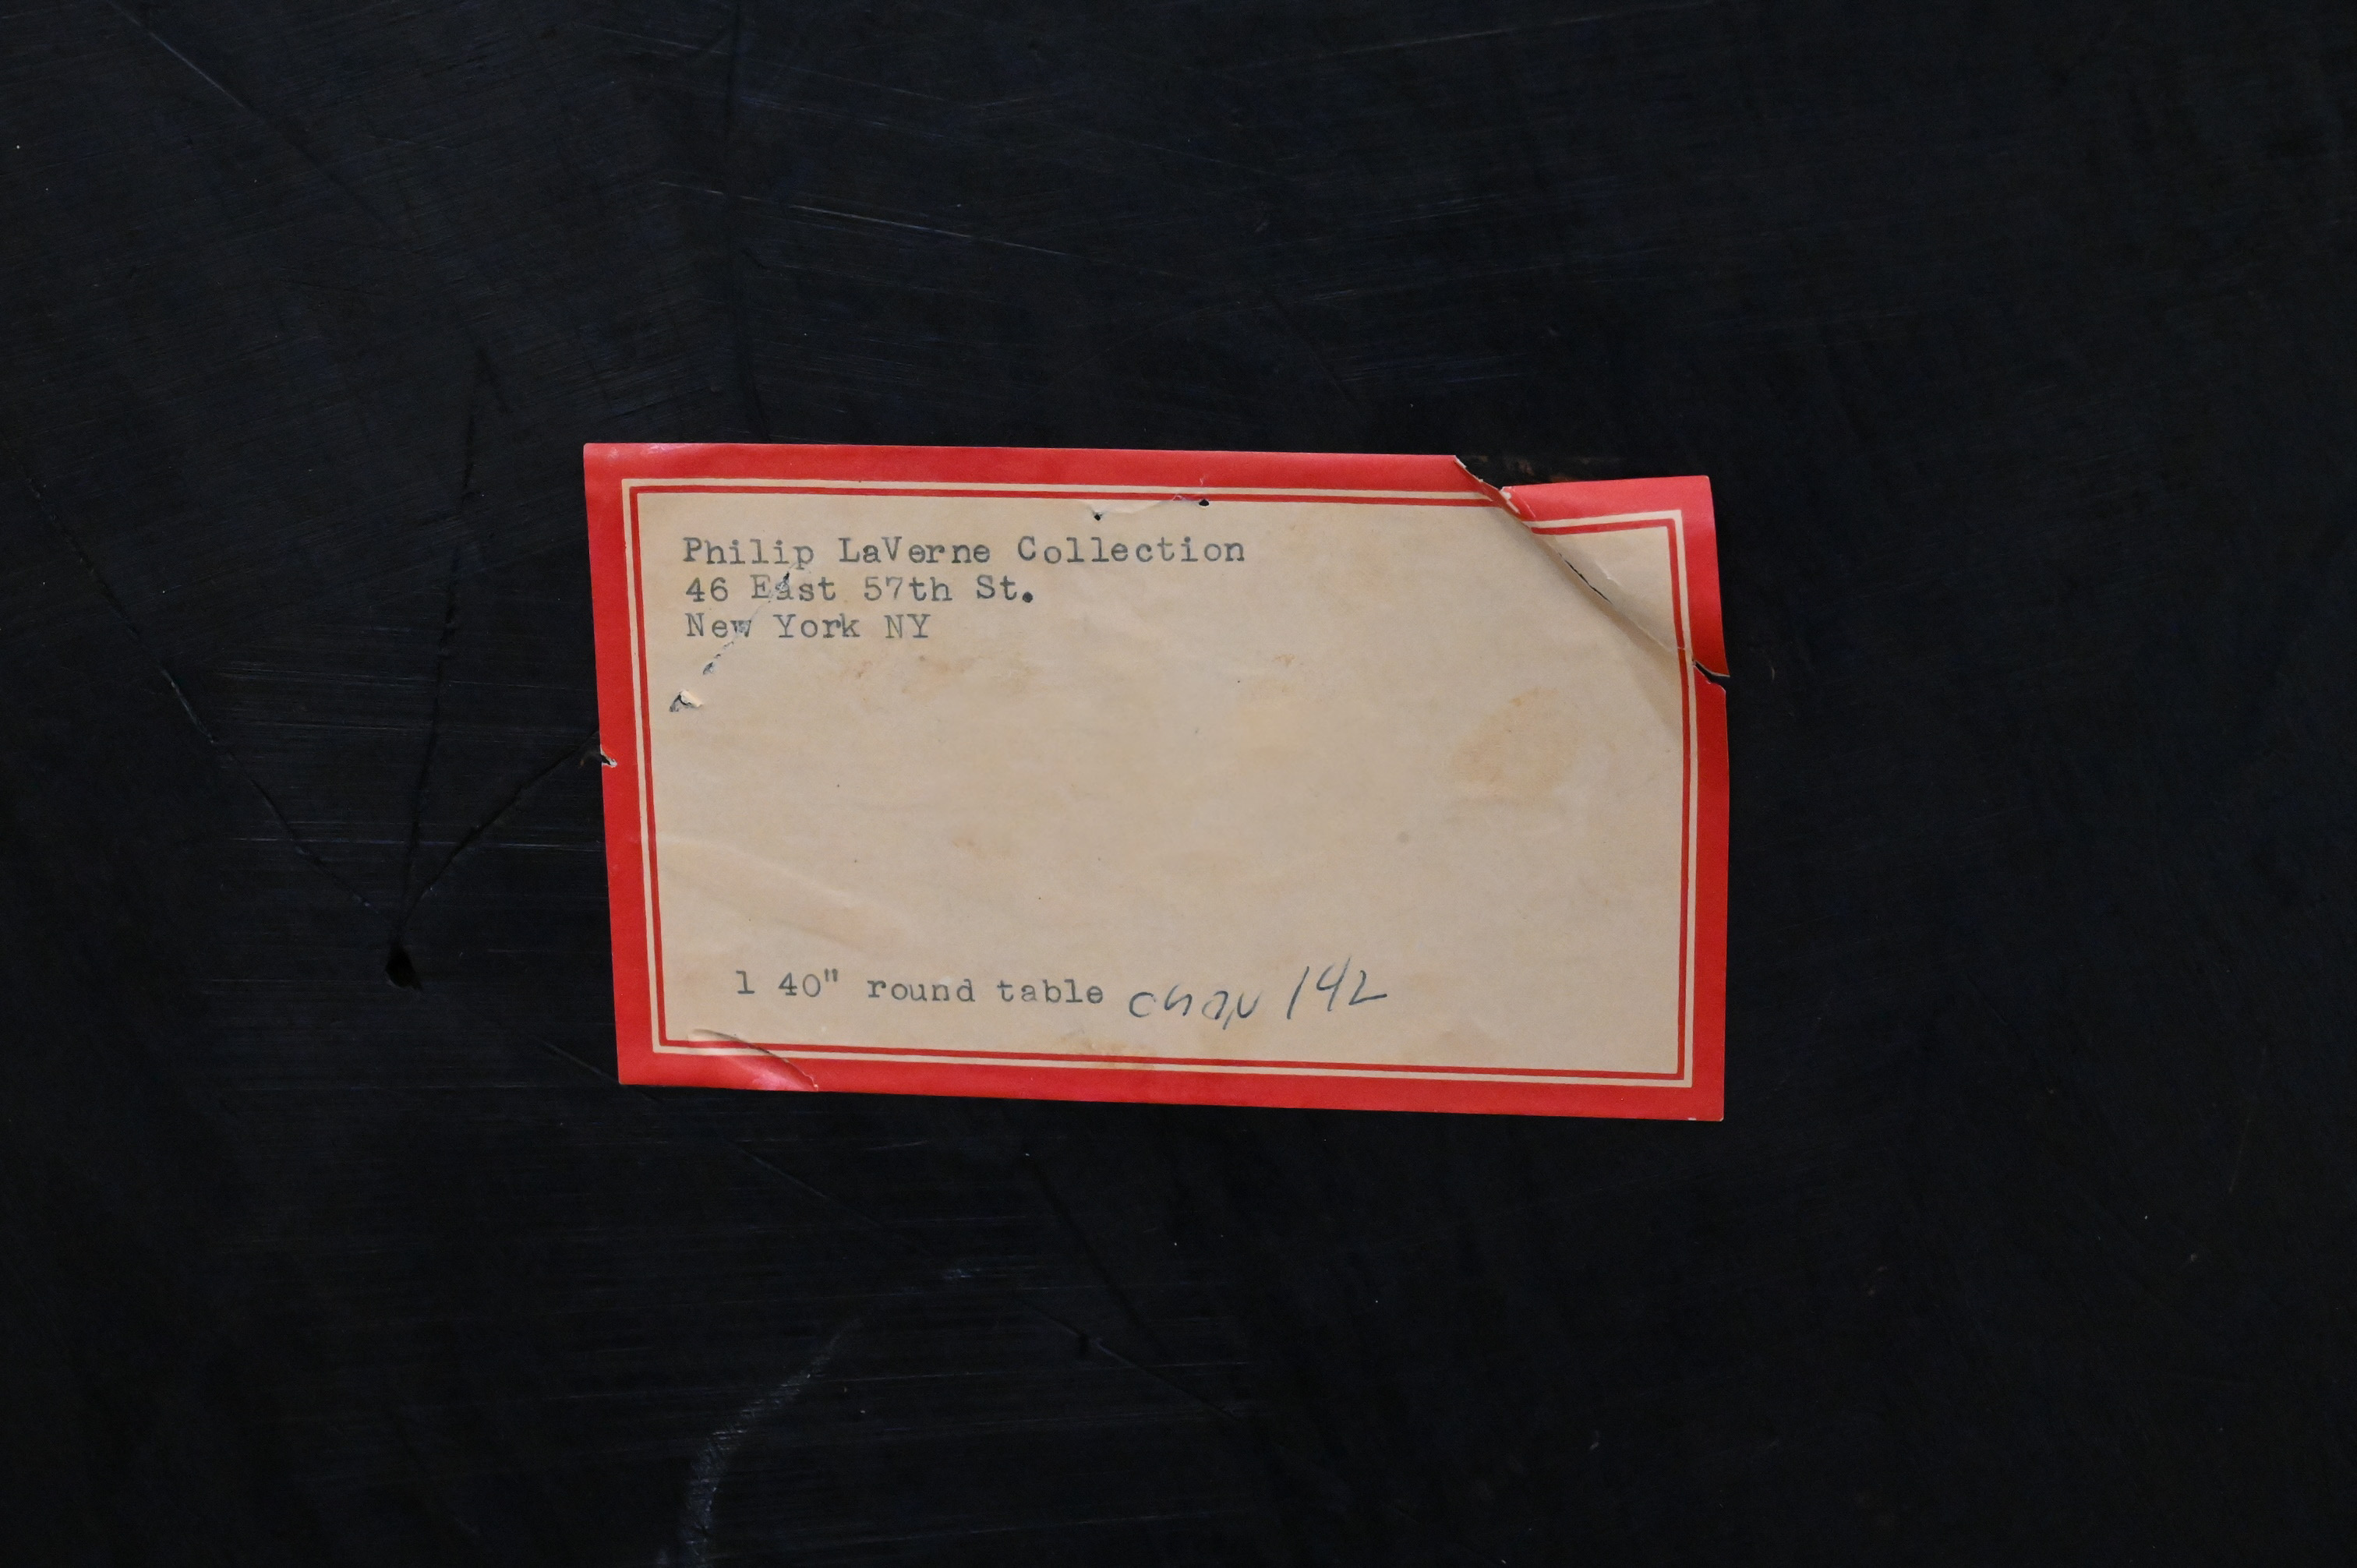 Philip LaVerne Collection
46 East 57th St.
New York NY
1 40" round table chan 142